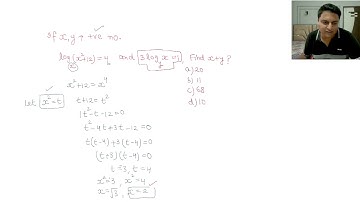 If x,y → +ve no.
log(x²+12)=4 and 3 log x = 1 Find x+y?
a) 20
x²+12=x⁴ b) 11
Let x²=t t+12=t² c) 68
t²-t-12=0 d) 10
t²-4t+3t-12=0
t(t-4)+3(t-4)=0
(t+3)(t-4)=0
t=3, t=4
x²=3, x²=4
x=√3, x=2